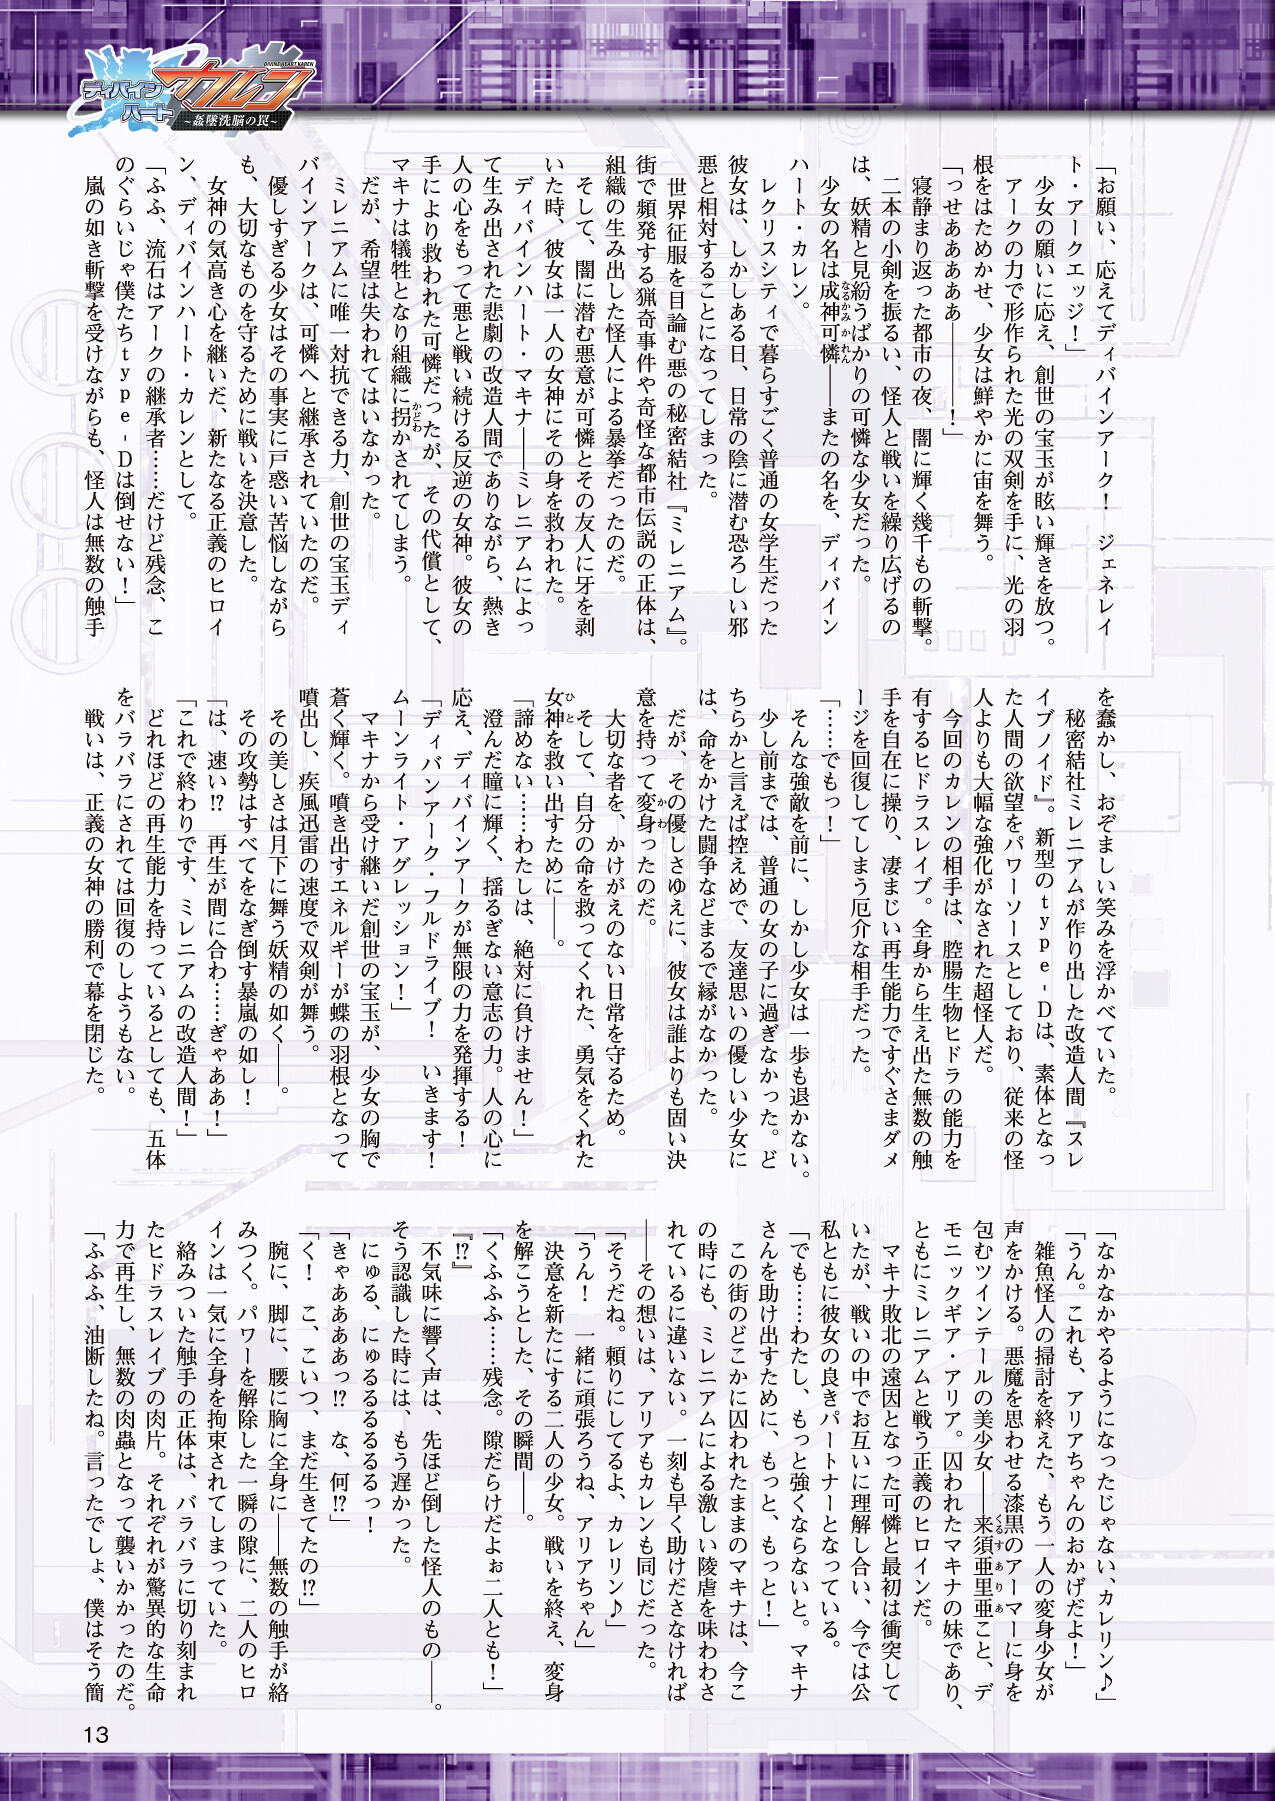 ディバインハート カレン
DIVINE HEART KAREN
~姦墜洗脳の罠~
「お願い、応えてディバインアーク! ジェネレイ
ト・アークエッジ!」
少女の願いに応え、創世の宝玉が眩い輝きを放つ。
アークの力で形作られた光の双剣を手に、光の羽
根をはためかせ、少女は鮮やかに宙を舞う。
「っせあああああ――――!」
寝静まり返った都市の夜、闇に輝く幾千もの斬撃。
二本の小剣を振るい、怪人と戦いを繰り広げるの
は、妖精と見紛うばかりの可憐な少女だった。
少女の名は成神可憐――またの名を、ディバイン
ハート・カレン。
レクリスシティで暮らすごく普通の女学生だった
彼女は、しかしある日、日常の陰に潜む恐ろしい邪
悪と相対することになってしまった。
世界征服を目論む悪の秘密結社『ミレニアム』。
街で頻発する猟奇事件や奇怪な都市伝説の正体は、
組織の生み出した怪人による暴挙だったのだ。
そして、闇に潜む悪意が可憐とその友人に牙を剥
いた時、彼女は一人の女神にその身を救われた。
ディバインハート・マキナ――ミレニアムによっ
て生み出された悲劇の改造人間でありながら、熱き
人の心をもって悪と戦い続ける反逆の女神。彼女の
手により救われた可憐だったが、その代償として、
マキナは犠牲となり組織に拐かされてしまう。
だが、希望は失われてはいなかった。
ミレニアムに唯一対抗できる力、創世の宝玉ディ
バインアークは、可憐へと継承されていたのだ。
優しすぎる少女はその事実に戸惑い苦悩しながら
も、大切なものを守るために戦いを決意した。
女神の気高き心を継いだ、新たなる正義のヒロイ
ン、ディバインハート・カレンとして。
「ふふ、流石はアークの継承者……だけど残念、こ
のぐらいじゃ僕たちtype-Dは倒せない!」
嵐の如き斬撃を受けながらも、怪人は無数の触手
を蠢かし、おぞましい笑みを浮かべていた。
秘密結社ミレニアムが作り出した改造人間『スレ
イブノイド』。新型のtype-Dは、素体となっ
た人間の欲望をパワーソースとしており、従来の怪
人よりも大幅な強化がなされた超怪人だ。
今回のカレンの相手は、腔腸生物ヒドラの能力を
有するヒドラスレイブ。全身から生え出た無数の触
手を自在に操り、凄まじい再生能力ですぐさまダメ
ージを回復してしまう厄介な相手だった。
「……でもっ!」
そんな強敵を前に、しかし少女は一歩も退かない。
少し前までは、普通の女の子に過ぎなかった。ど
ちらかと言えば控えめで、友達思いの優しい少女に
は、命をかけた闘争などまるで縁がなかった。
だが、その優しさゆえに、彼女は誰よりも固い決
意を持って変身ったのだ。
大切な者を、かけがえのない日常を守るため。
そして、自分の命を救ってくれた、勇気をくれた
女神を救い出すために――。
「諦めない……わたしは、絶対に負けません!」
澄んだ瞳に輝く、揺るぎない意志の力。人の心に
応え、ディバインアークが無限の力を発揮する!
「ディバンアーク・フルドライブ! いきます!
ムーンライト・アグレッション!」
マキナから受け継いだ創世の宝玉が、少女の胸で
蒼く輝く。噴き出すエネルギーが蝶の羽根となって
噴出し、疾風迅雷の速度で双剣が舞う。
その美しさは月下に舞う妖精の如く――。
その攻勢はすべてをなぎ倒す暴嵐の如し!
「は、速い!? 再生が間に合わ……ぎゃああ!」
「これで終わりです、ミレニアムの改造人間!」
どれほどの再生能力を持っているとしても、五体
をバラバラにされては回復のしようもない。
戦いは、正義の女神の勝利で幕を閉じた。
「なかなかやるようになったじゃない、カレリン♪」
「うん。これも、アリアちゃんのおかげだよ!」
雑魚怪人の掃討を終えた、もう一人の変身少女が
声をかける。悪魔を思わせる漆黒のアーマーに身を
包むツインテールの美少女――来須亜里亜こと、デ
モニックギア・アリア。囚われたマキナの妹であり、
ともにミレニアムと戦う正義のヒロインだ。
マキナ敗北の遠因となった可憐と最初は衝突して
いたが、戦いの中でお互いに理解し合い、今では公
私ともに彼女の良きパートナーとなっている。
「でも……わたし、もっと強くならないと。マキナ
さんを助け出すために、もっと、もっと!」
この街のどこかに囚われたままのマキナは、今こ
の時にも、ミレニアムによる激しい陵虐を味わわさ
れているに違いない。一刻も早く助けださなければ
――その想いは、アリアもカレンも同じだった。
「そうだね。頼りにしてるよ、カレリン♪」
「うん! 一緒に頑張ろうね、アリアちゃん」
決意を新たにする二人の少女。戦いを終え、変身
を解こうとした、その瞬間――。
「くふふふ……残念。隙だらけだよぉ二人とも!」
『!?』
不気味に響く声は、先ほど倒した怪人のもの――。
そう認識した時には、もう遅かった。
にゅる、にゅるるるるるるっ!
「きゃああああっ!? な、何!?」
「く! こ、こいつ、まだ生きてたの!?」
腕に、脚に、腰に胸に全身に――無数の触手が絡
みつく。パワーを解除した一瞬の隙に、二人のヒロ
インは一気に全身を拘束されてしまっていた。
絡みついた触手の正体は、バラバラに切り刻まれ
たヒドラスレイブの肉片。それぞれが驚異的な生命
力で再生し、無数の肉蟲となって襲いかかったのだ。
「ふふふ、油断したね。言ったでしょ、僕はそう簡
13